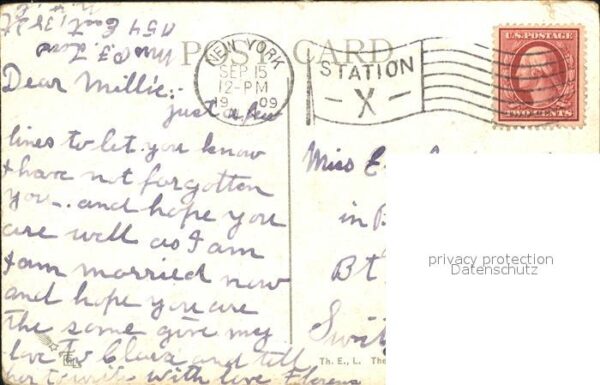 POST CARD
NEW YORK
SEP 15
12-PM
1909
STATION
X
U.S. POSTAGE
TWO CENTS
Dear Millie:-
just a few
lines to let you know
I have not forgotten
you - and hope you
are well as I am
I am married now
and hope you are
the same give my
love to Clara and tell
her to write with love Florence
Miss E
in B
Bt
Swit
Th. E. L. The
privacy protection
Datenschutz